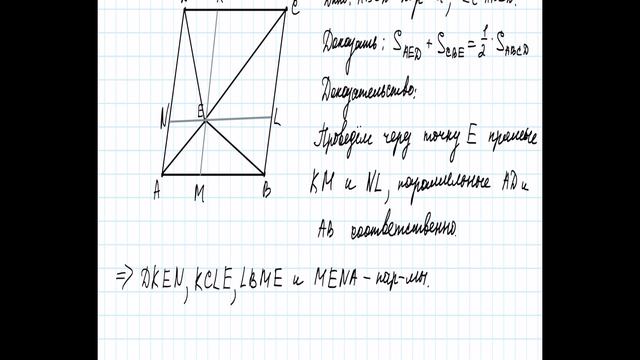 C
Доказать: S_AED + S_CBE = 1/2 · S_ABCD
Доказательство:
E
N
L
Проведём через точку E прямые
KM и NL, параллельные AD и
A
M
B
AB соответственно.
=> DKEN, KCLE, LBME и MENA – пар-мы.